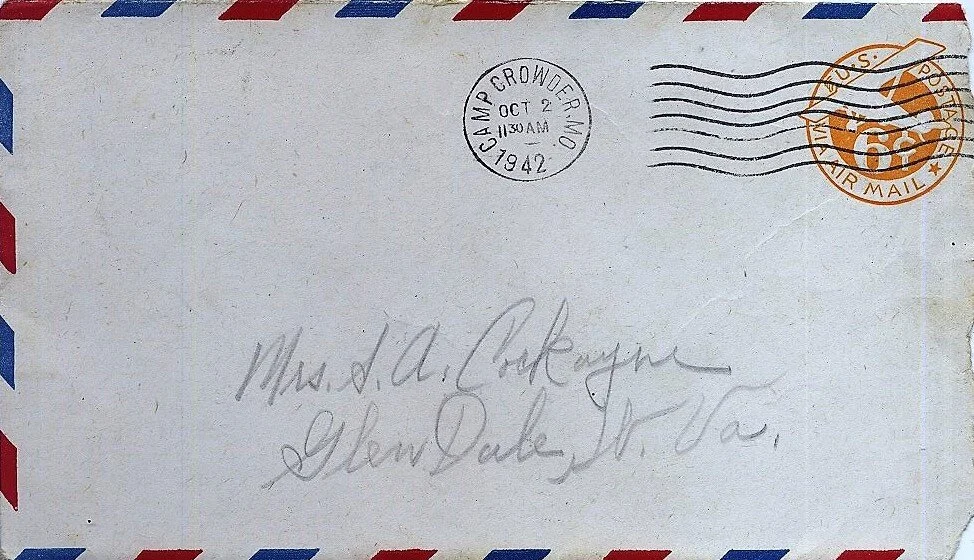 CAMP CROWDER, MO.
OCT 2
11 30 AM
1942
U.S. POSTAGE
VIA AIR MAIL
6¢
Mrs. S. A. Cockayne
Glen Dale, W. Va.